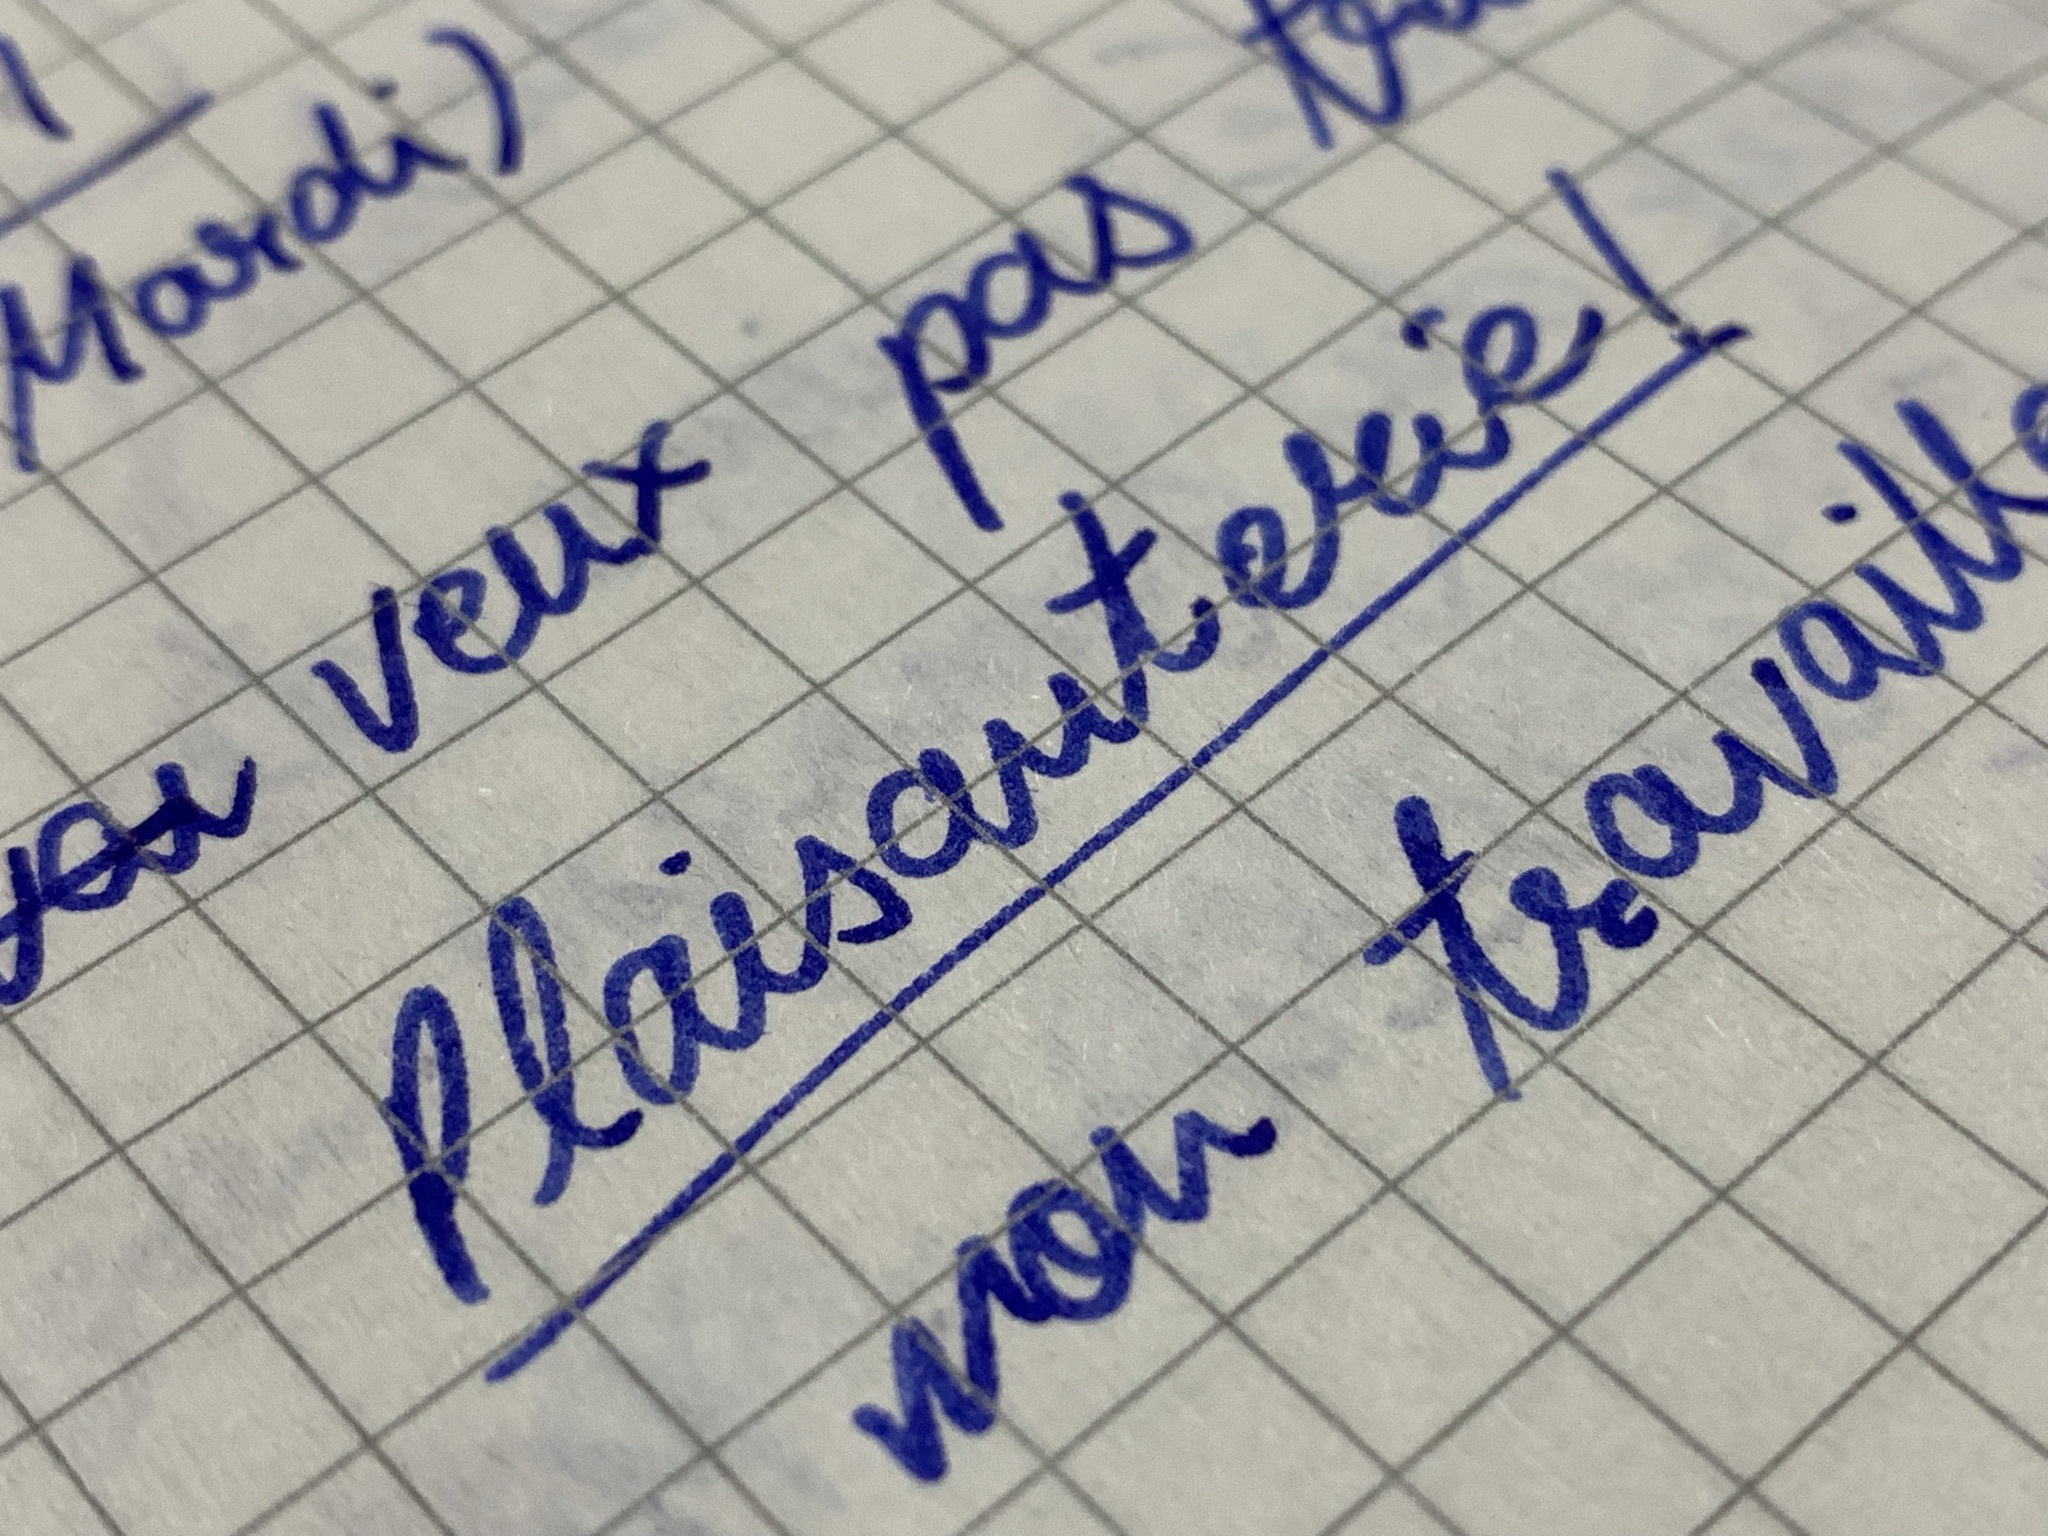 Mardi)
veux pas
Plaisanterie!
non travaille